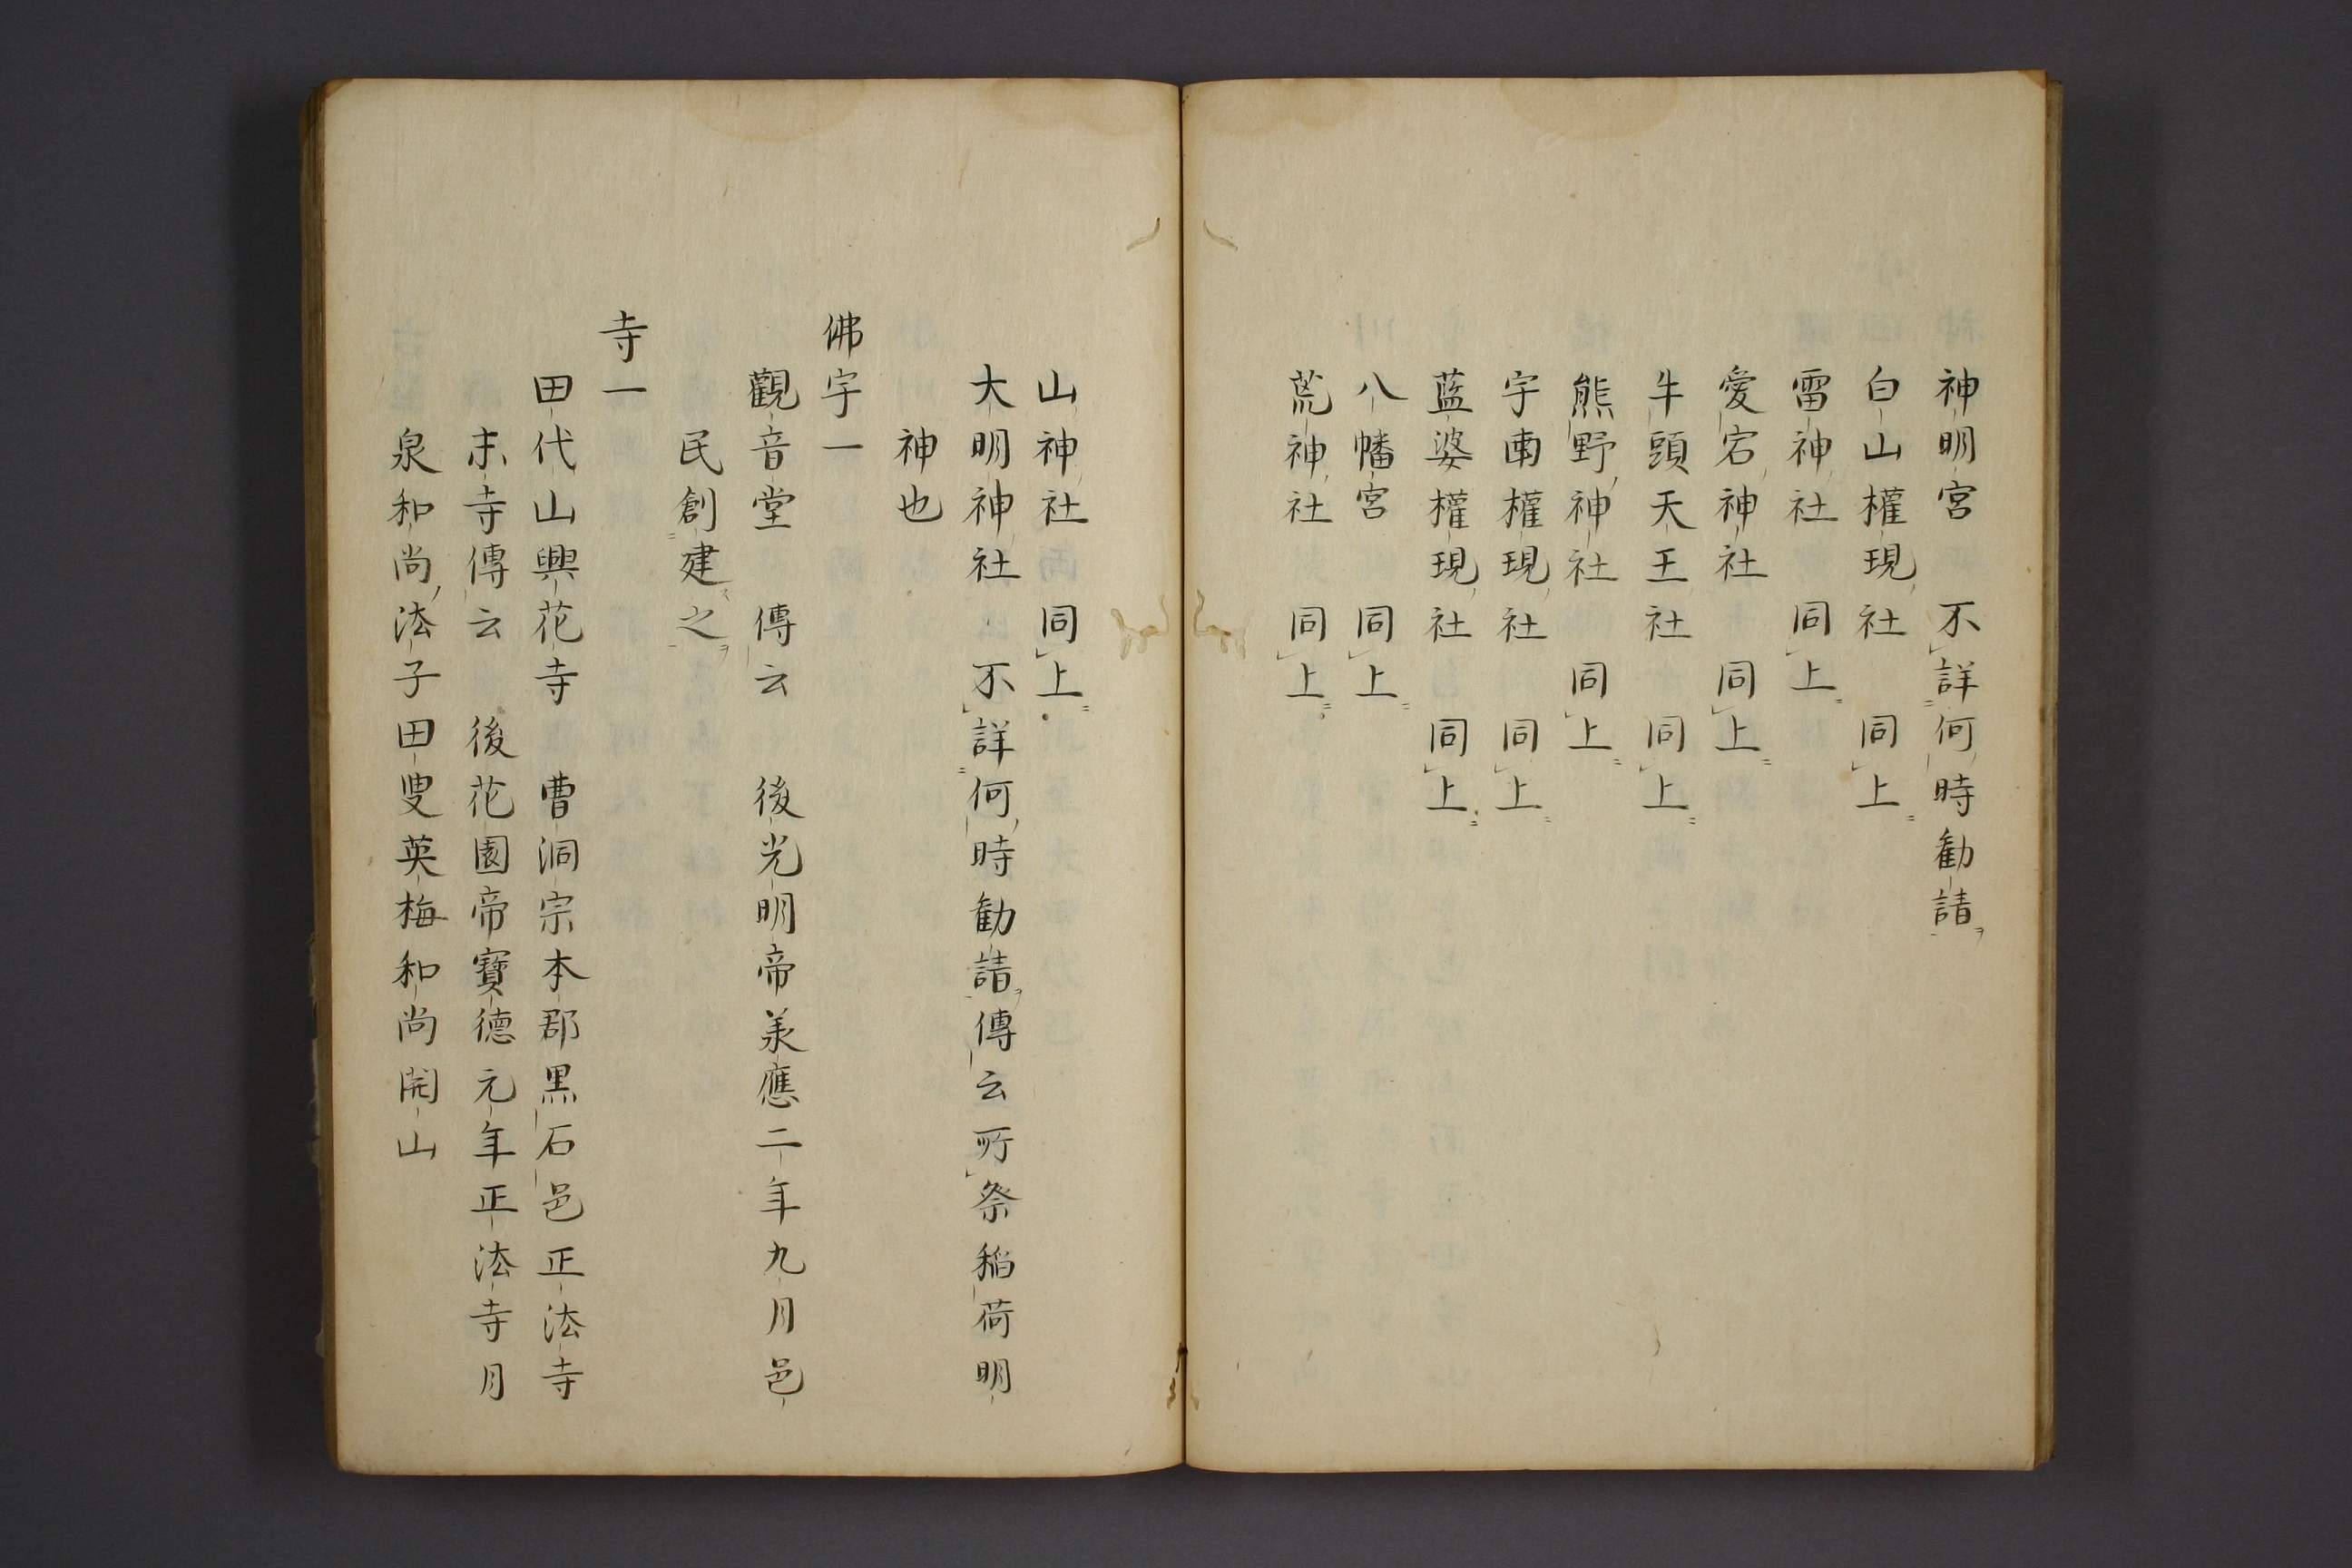 神明宮　不詳何時勸請
白山權現社　同上
雷神社　同上
愛宕神社　同上
牛頭天王社　同上
熊野神社　同上
宇南權現社　同上
藍婆權現社　同上
八幡宮　同上
荒神社　同上
山神社　同上
大明神社　不詳何時勸請傳云所祭稲荷明
神也
佛宇一
觀音堂　傳云　後光明帝羕應二年九月邑
民創建之
寺一
田代山興花寺　曹洞宗本郡黒石邑正法寺
末寺傳云　後花園帝寶德元年正法寺月
泉和尚法子田叟英梅和尚開山